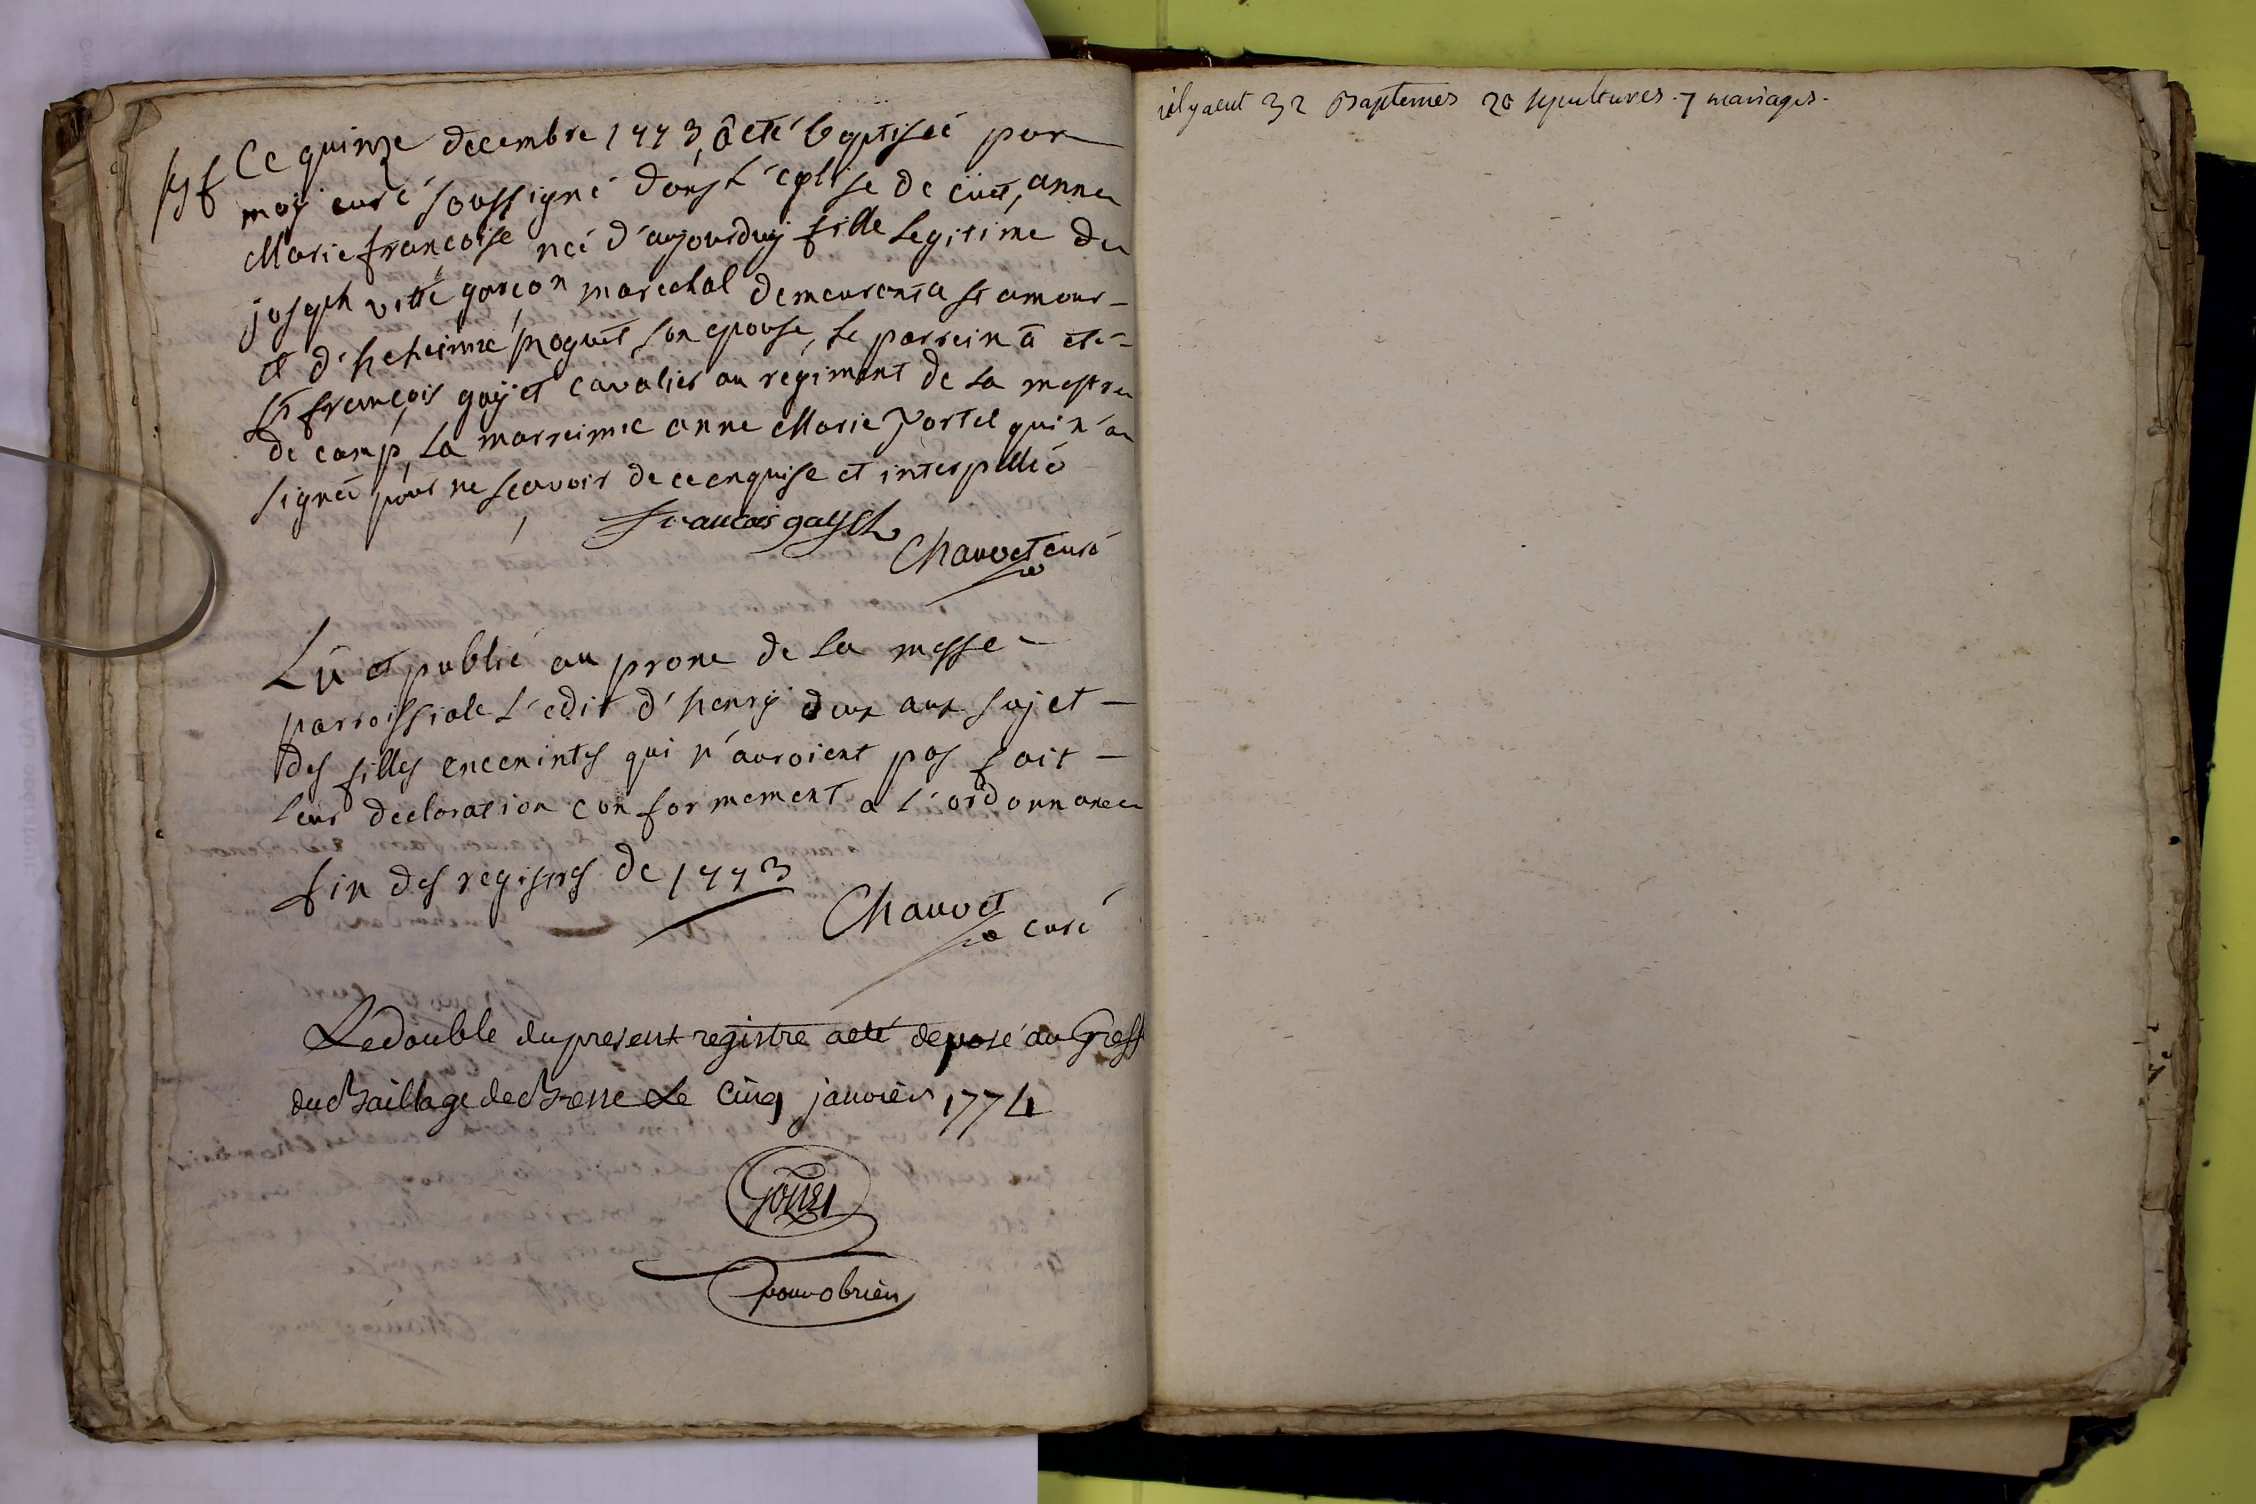 Ce quinze decembre 1773, â eté baptiseé par
moÿ curé soussigné dans l'église de cuet, anne
Marie francoise neé d'aujourduÿ fille legitime de
joseph vitte garcon marechal demeurant a st amour
et d'heteinne poguet son epouse, le parrein â eté
sr francois gaÿet cavalier au régiment de la mestre
de camp, la marreinne anne Marie portel qui n'a
signeé pour ne scavoir de ce enquise et interpelleé
francois gayet
Chauvet curé
Lû et publié au prone de la messe
parroissiale l'edit d'henrÿ deux aux sujet
des filles enceeintes qui n'auroient pas fait
leur declaration conformement a l'ordonnance
fin des régistres de 1773
Chauvet
curé
Le double du present registre aeté deposé au Greff
du Baillage de Bresse Le Cinq janvier 1774
pouvobrien
il y a eut 32 Baptemes 20 sepultures. 7 mariages.